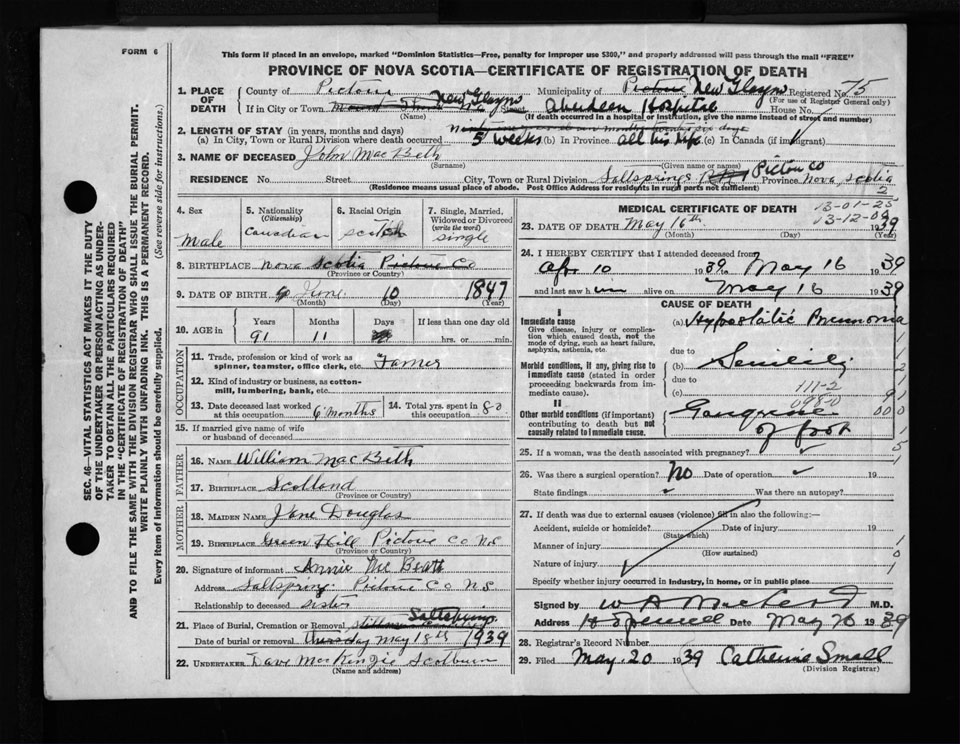 FORM 6
This form if placed in an envelope, marked "Dominion Statistics—Free, penalty for improper use $300," and properly addressed will pass through the mail "FREE"
PROVINCE OF NOVA SCOTIA—CERTIFICATE OF REGISTRATION OF DEATH
1. PLACE OF DEATH
County of Pictou Municipality of Pictou New Glasgow Registered No. 75
(For use of Registrar General only)
If in City or Town New Glasgow Street Aberdeen Hospital House No.
(Name) (If death occurred in a hospital or institution, give the name instead of street and number)
2. LENGTH OF STAY (in years, months and days)
(a) In City, Town or Rural Division where death occurred 5 weeks (b) In Province all his life (c) In Canada (if immigrant)
3. NAME OF DECEASED John MacBeth
(Surname) (Given name or names)
RESIDENCE No. Street City, Town or Rural Division Saltsprings Pictou Co Province Nova Scotia
(Residence means usual place of abode. Post Office Address for residents in rural parts not sufficient)
4. Sex
Male
5. Nationality
(Citizenship)
Canadian
6. Racial Origin
Scotch
7. Single, Married, Widowed or Divorced
(write the word)
single
8. BIRTHPLACE Nova Scotia Pictou Co
(Province or Country)
9. DATE OF BIRTH June 10 1847
(Month) (Day) (Year)
10. AGE in
Years Months Days If less than one day old
91 11 hrs. or min.
OCCUPATION
11. Trade, profession or kind of work as spinner, teamster, office clerk, etc. Farmer
12. Kind of industry or business, as cotton-mill, lumbering, bank, etc.
13. Date deceased last worked at this occupation 6 months
14. Total yrs. spent in this occupation 80
15. If married give name of wife or husband of deceased
FATHER
16. Name William MacBeth
17. Birthplace Scotland
(Province or Country)
MOTHER
18. Maiden Name Jane Douglas
19. Birthplace Green Hill Pictou Co NS
(Province or Country)
20. Signature of informant Annie Mc Beath
Address Saltspring Pictou Co NS
Relationship to deceased sister
21. Place of Burial, Cremation or Removal Saltsprings
Date of burial or removal Thursday May 18th 1939
22. UNDERTAKER Dave MacKenzie Scotburn
(Name and address)
MEDICAL CERTIFICATE OF DEATH
13-01-25
13-12-09
23. DATE OF DEATH May 16th 1939
(Month) (Day) (Year)
24. I HEREBY CERTIFY that I attended deceased from
Apr 10 1939 to May 16 1939
and last saw him alive on May 16 1939
CAUSE OF DEATH
I
Immediate cause
Give disease, injury or complication which caused death, not the mode of dying, such as heart failure, asphyxia, asthenia, etc.
(a) Hypostatic Pneumonia
due to
Morbid conditions, if any, giving rise to immediate cause (stated in order proceeding backwards from immediate cause).
(b) Senility
due to
111-2
(c)
098-0
II
Other morbid conditions (if important) contributing to death but not causally related to immediate cause.
Gangrene
of foot
25. If a woman, was the death associated with pregnancy?
26. Was there a surgical operation? No Date of operation 19
State findings Was there an autopsy?
27. If death was due to external causes (violence) fill in also the following:—
Accident, suicide or homicide? Date of injury 19
(State which)
Manner of injury
(How sustained)
Nature of injury
Specify whether injury occurred in industry, in home, or in public place
Signed by M.D.
Address Date May 20 1939
28. Registrar's Record Number
29. Filed May 20 1939 Catherine Small
(Division Registrar)
SEC. 46—VITAL STATISTICS ACT MAKES IT THE DUTY OF THE UNDERTAKER OR PERSON ACTING AS UNDERTAKER TO OBTAIN ALL THE PARTICULARS REQUIRED IN THE "CERTIFICATE OF REGISTRATION OF DEATH" AND TO FILE THE SAME WITH THE DIVISION REGISTRAR WHO SHALL ISSUE THE BURIAL PERMIT.
WRITE PLAINLY WITH UNFADING INK. THIS IS A PERMANENT RECORD.
Every item of Information should be carefully supplied. (See reverse side for instructions.)